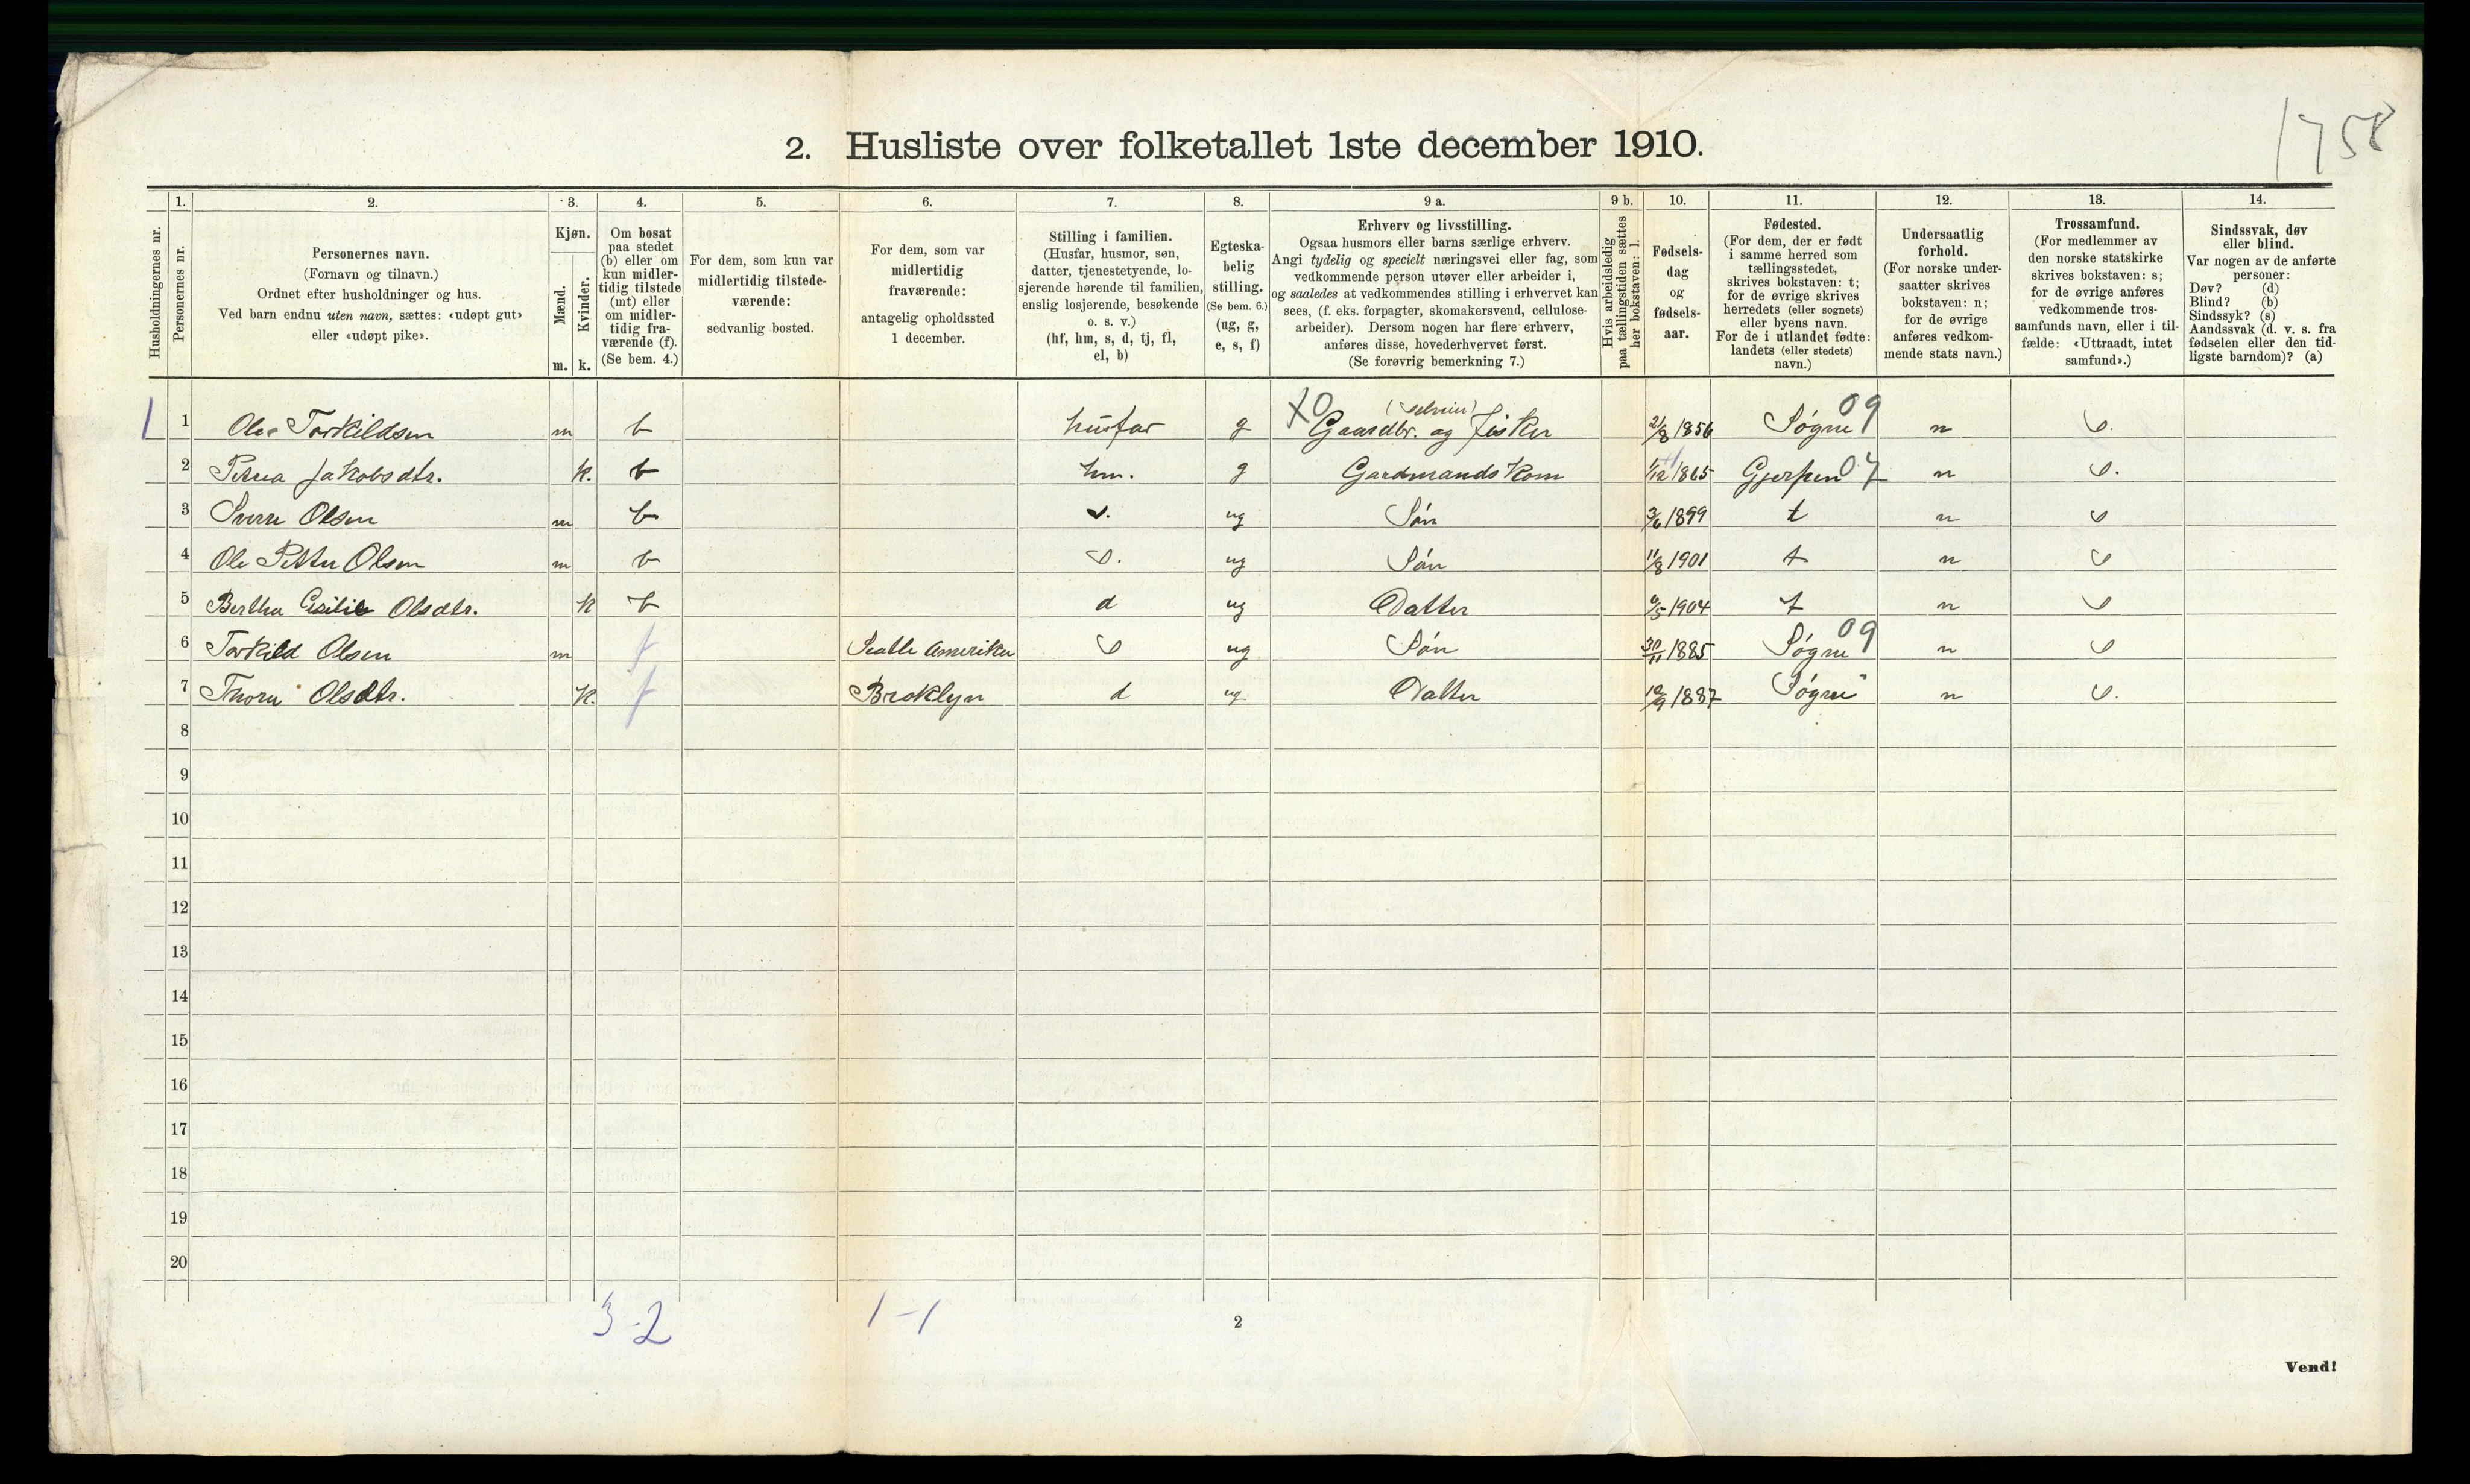 1758
2. Husliste over folketallet 1ste december 1910.
1. 2. 3. 4. 5. 6. 7. 8. 9 a. 9 b. 10. 11. 12. 13. 14.
Husholdningernes nr.
Personernes nr.
Personernes navn.
(Fornavn og tilnavn.)
Ordnet efter husholdninger og hus.
Ved barn endnu uten navn, sættes: «udøpt gut»
eller «udøpt pike».
Kjøn.
Mænd.
Kvinder.
m. k.
Om bosat
paa stedet
(b) eller om
kun midler-
tidig tilstede
(mt) eller
om midler-
tidig fra-
værende (f).
(Se bem. 4.)
For dem, som kun var
midlertidig tilstede-
værende:
sedvanlig bosted.
For dem, som var
midlertidig
fraværende:
antagelig opholdssted
1 december.
Stilling i familien.
(Husfar, husmor, søn,
datter, tjenestetyende, lo-
sjerende hørende til familien,
enslig losjerende, besøkende
o. s. v.)
(hf, hm, s, d, tj, fl,
el, b)
Egteska-
belig
stilling.
(Se bem. 6.)
(ug, g,
e, s, f)
Erhverv og livsstilling.
Ogsaa husmors eller barns særlige erhverv.
Angi tydelig og specielt næringsvei eller fag, som
vedkommende person utøver eller arbeider i,
og saaledes at vedkommendes stilling i erhvervet kan
sees, (f. eks. forpagter, skomakersvend, cellulose-
arbeider). Dersom nogen har flere erhverv,
anføres disse, hovederhvervet først.
(Se forøvrig bemerkning 7.)
Hvis arbeidsledig
paa tællingstiden sættes
her bokstaven: l.
Fødsels-
dag
og
fødsels-
aar.
Fødested.
(For dem, der er født
i samme herred som
tællingsstedet,
skrives bokstaven: t;
for de øvrige skrives
herredets (eller sognets)
eller byens navn.
For de i utlandet fødte:
landets (eller stedets)
navn.)
Undersaatlig
forhold.
(For norske under-
saatter skrives
bokstaven: n;
for de øvrige
anføres vedkom-
mende stats navn.)
Trossamfund.
(For medlemmer av
den norske statskirke
skrives bokstaven: s;
for de øvrige anføres
vedkommende tros-
samfunds navn, eller i til-
fælde: «Uttraadt, intet
samfund».)
Sindssvak, døv
eller blind.
Var nogen av de anførte
personer:
Døv? (d)
Blind? (b)
Sindssyk? (s)
Aandssvak (d. v. s. fra
fødselen eller den tid-
ligste barndom)? (a)
1 1 Ole Torkildsen m b husfar g XO Gaardbr. og Fisker 2/8 1856 Søgne 09 n s.
2 Petrea Jakobsdtr. k. b hm. g Gardmandskone 1/12 1865 Gjerpen 07 n s.
3 Sverre Olsen m b s. ug Søn 3/6 1899 t n s
4 Ole Petter Olsen m b s. ug Søn 11/8 1901 t n s
5 Bertha Cicilie Olsdtr. k b d ug Datter 6/5 1904 t n s
6 Torkild Olsen m f Seatle Amerika s ug Søn 30/11 1885 Søgne 09 n s
7 Thora Olsdtr. k. f Broklyn d ug Datter 1887 Søgne " n s.
8
9
10
11
12
13
14
15
16
17
18
19
20
3-2 1-1
2
Vend!